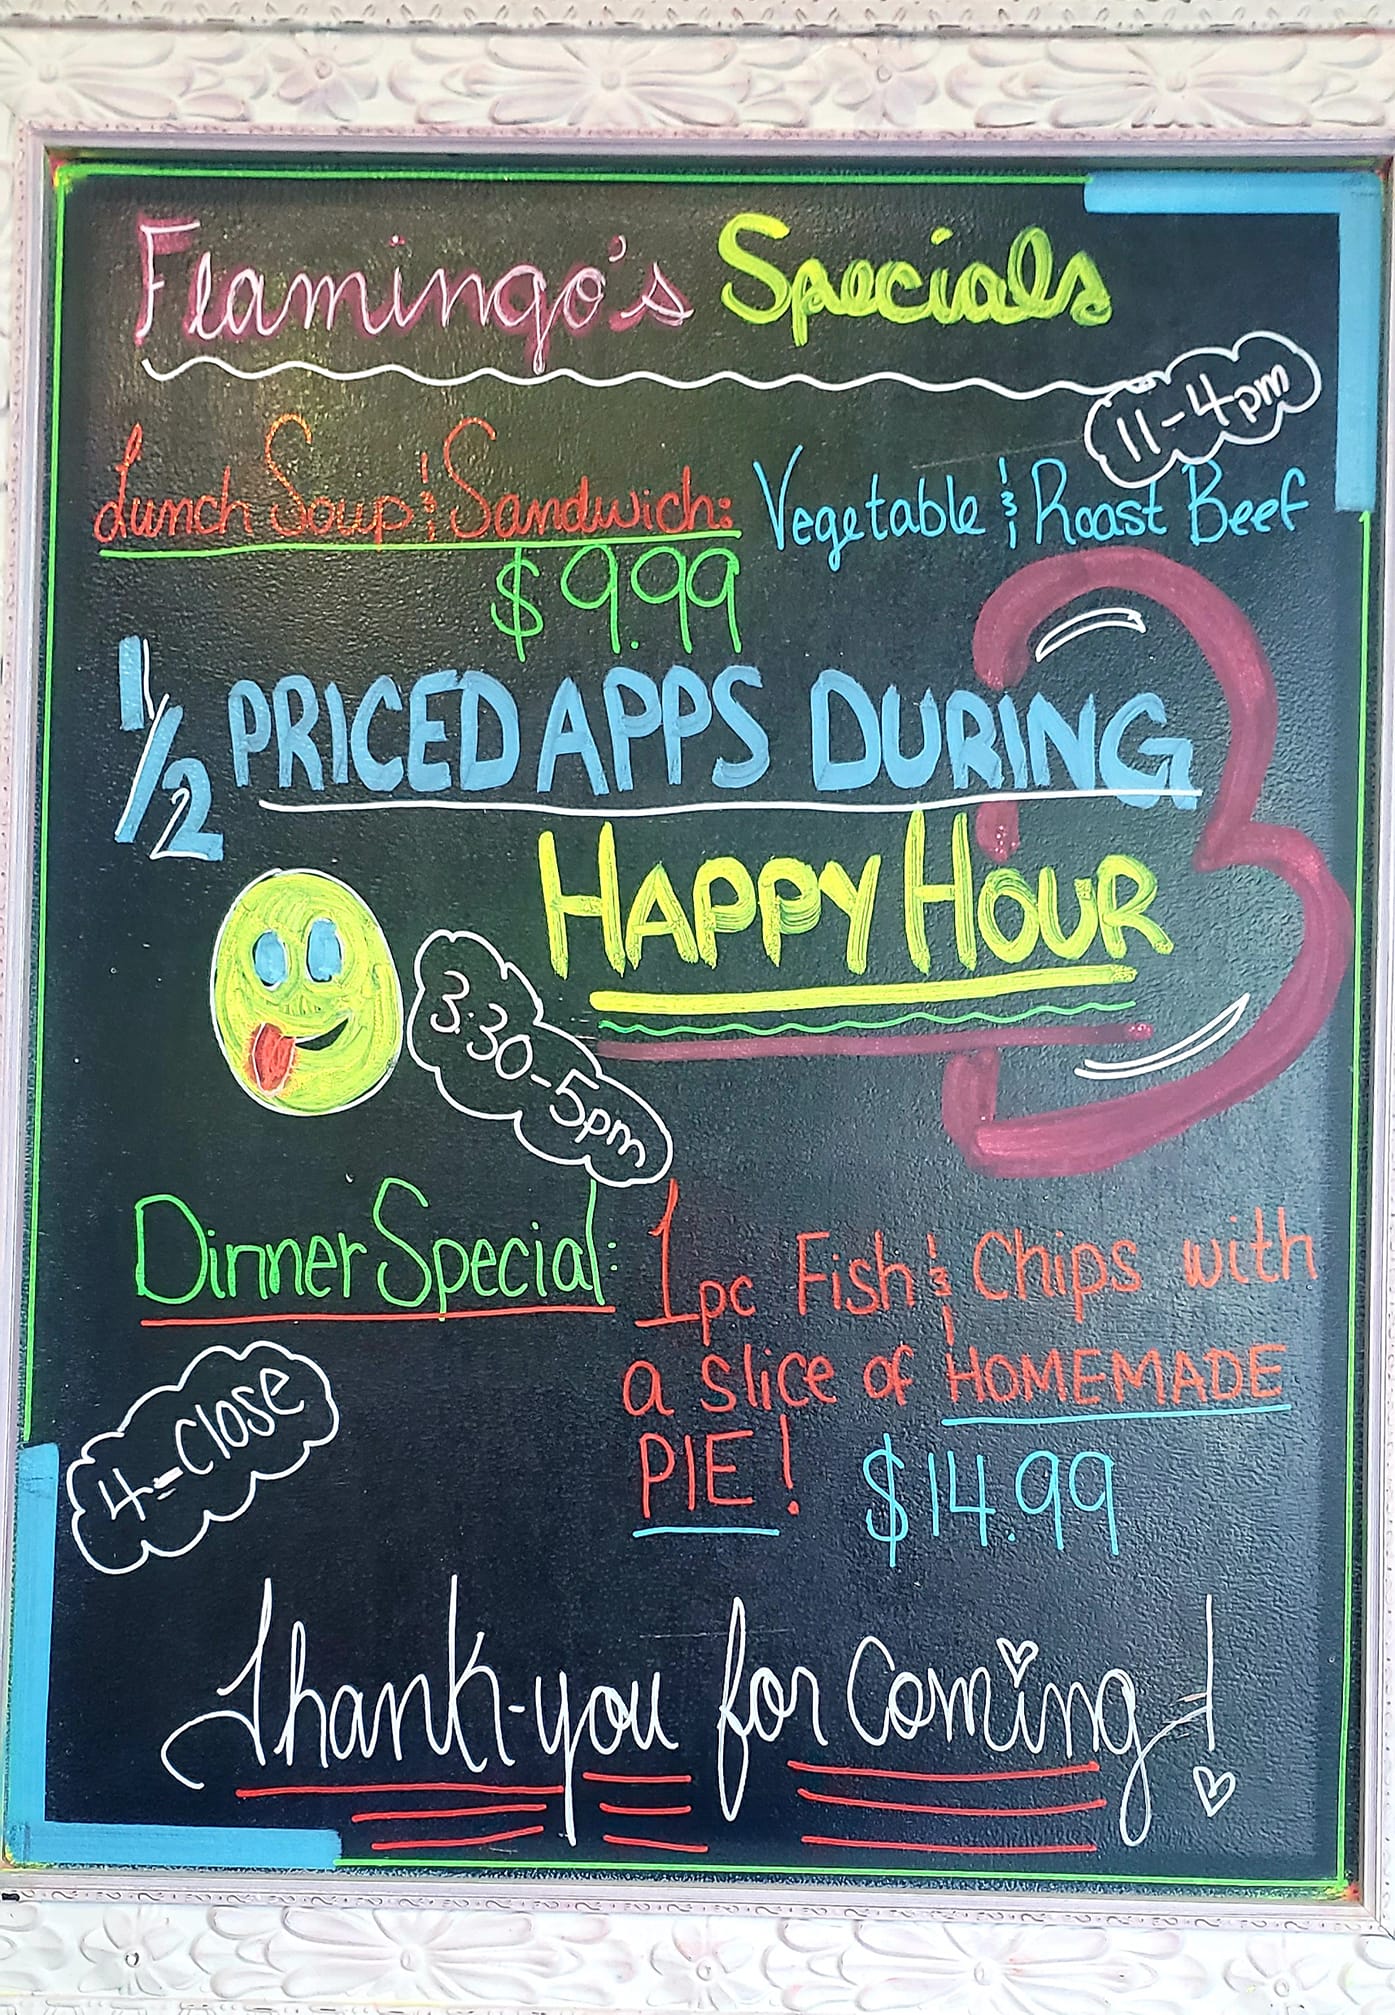 Flamingo's Specials
11-4pm
Lunch Soup & Sandwich: Vegetable & Roast Beef
$9.99
1/2 PRICED APPS DURING
HAPPY HOUR
3:30-5pm
Dinner Special: 1pc Fish & Chips with
a slice of HOMEMADE
4-Close
PIE! $14.99
Thank-you for Coming!